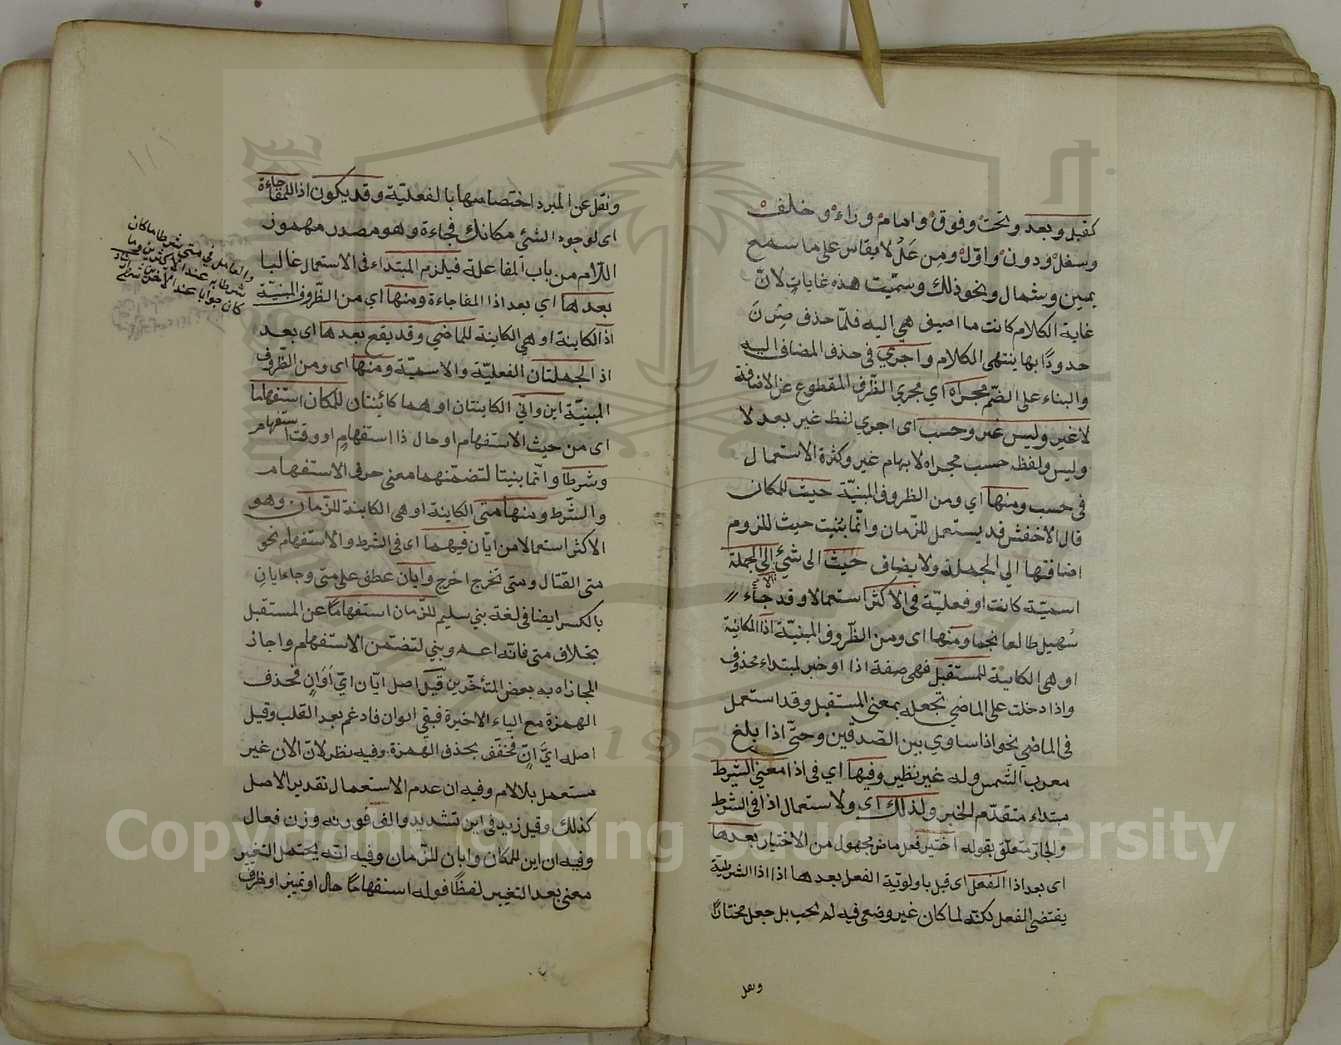 كقبل وبعد وتحت وفوق وامام ووراء وخلف
وسفل ودون واوّل ومن عَلُ لا يقاس على ما سمع
يمين وشمال ونحو ذلك وسمّيت هذه غاياتٍ لانّ
غاية الكلام كانت ما اضيف هي اليه فلمّا حذف صِرْنَ
حدودًا بها ينتهى الكلام واجرى في حذف المضاف اليه
والبناء على الضمّ مجراه اي مجرى الظرف المقطوع عن الاضافة
لا غير وليس غير وحسب اى اجرى لفظ غير بعد لا
وليس ولفظ حسب مجراه لابهام غير وكثرة الاستعمال
في حسب ومنها اي ومن الظروف المبنيّة حيث للمكان
قال الاخفش قد يستعمل للزمان وانّما بُنيت حيث للزوم
اضافتها الى الجملة ولا يضاف حيث الى شئ الا الى الجملة
اسميّة كانت او فعليّة في الاكثر استعمالا وقد جاء
سُهيل طالعا نجما ومنها اى ومن الظّروف المبنيّة اذا المكانية
او هى الكاينة للمستقبل فهى صفة اذا او خبر لمبتداء محذوف
واذا دخلت على الماضي تجعله بمعنى المستقبل وقد استعمل
في الماضى نحو اذا ساوي بين الصّدفين وحتّى اذا بلغ
مغرب الشمس وله غير نظير وفيها اي في اذا معنى الشرط
مبتداء متقدّم الخبر ولذلك اى ولاستعمال اذا في الشرط
والجار متعلق بقوله اختير فعل ماض مجهول من الاختيار بعدها
اى بعد اذا الفعل اى قيل باولويّة الفعل بعدها اذ اذا الشرطية
يقتضى الفعل لكنّه لما كان غير وضعى فيه لم يجب بل جعل مختارًا
ونقل
ونقل عن المبرد اختصاصها بالفعليّة وقد يكون اذا للمفاجاءة
اى لوجود الشئ مكانك فجاءة وهو مصدر مهموز
اللّام من باب المفاعلة فيلزم المبتداء في الاستعمال غالبا
بعدها اي بعد اذا المفاجاءة ومنها اي من الظروف المبنيّة
اذ الكاينة او هي الكاينة للماضى وقد يقع بعدها اى بعد
اذ الجملتان الفعليّة والاسميّة ومنها اى ومن الظّروف
المبنيّة اين وانّى الكاينتان او هما كائنتان للمكان استفهاما
اى من حيث الاستفهام او حال ذا استفهام او وقت استفهام
وشرطا وانّما بنيتا لتضمّنهما معنى حرفى الاستفهام
والشّرط ومنها متى الكاينة او هى الكاينة للزّمان وهو
الاكثر استعمالا من ايّان فيهما اى في الشرط والاستفهام نحو
متى القتال ومتى تخرج اخرج وايّان عطف على متى وجاء ايان
بالكسر ايضا في لغة بني سليم للزّمان استفهامًا عن المستقبل
بخلاف متى فانّه اعم وبني لتضمّن الاستفهام واجاز
المجازاة به بعض المتأخّرين قيل اصل ايّان ايّ اَوَانٍ فحذف
الهمزة مع الياء الاخيرة فبقي ايوان فادغم بعد القلب وقيل
اصله ايّ انٍ فخفّف بحذف الهمزة وفيه نظر لانّ الان غير
مستعمل بلا لام وفيه ان عدم الاستعمال تقدير الاصل
كذلك وقيل زيد في اين تشديد والف فورنه وزن فعال
وفيه ان اين للمكان وايان للزّمان وفيه انّه يحتمل التغير
معنى بعد التغيير لفظًا قوله استفهامًا حال او تميز او ظرف
والعامل في متى شرطا ما كان
شرطا به عند الاكثرين وما
كان جوابا عند